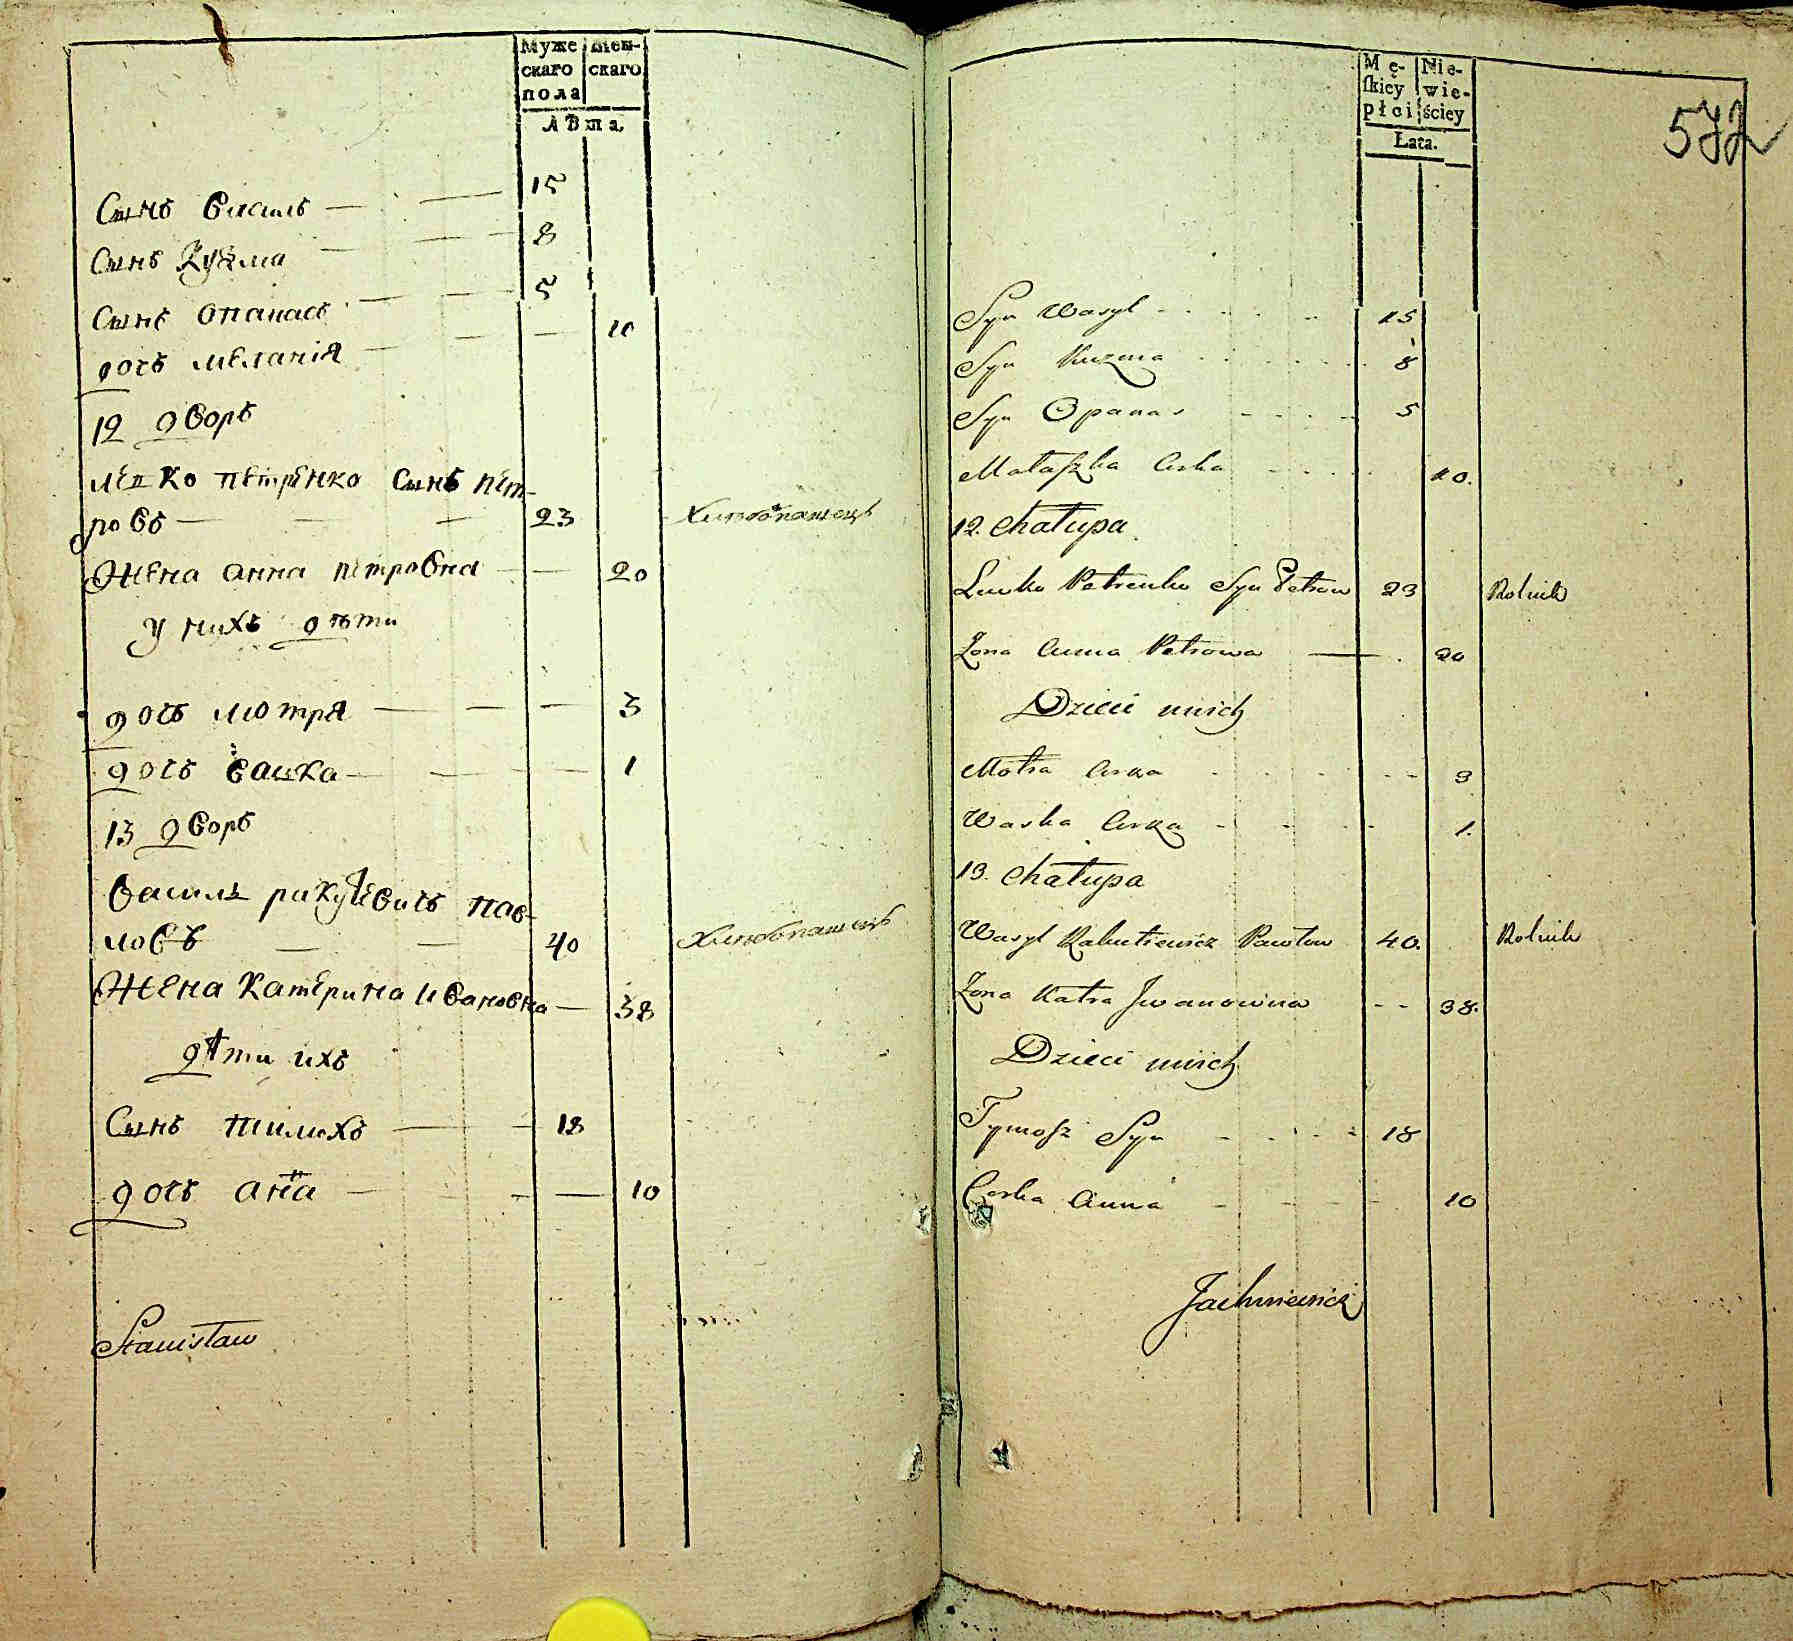 Муже Жен-
скаго скаго
пола
Лѣта.
Сынъ Василь 15
Сынъ Кузма 8
Сынъ Опанасъ 5
дочъ меланія 10
12 дворъ
петренко Сынъ пет-
ровъ 23 Хлѣбопашецъ
Жена анна петровна 20
у нихъ дѣти
дочъ мотря 3
дочъ васка 1
13 дворъ
Василь ракуцевичъ пав-
ловъ 40 Хлѣбопашецъ
Жена Катерина Ивановна 38
дѣти ихъ
Сынъ тимохъ 18
дочъ анна 10
Stanisław
Mę- Nie-
skiey wie-
płci ściey
Lata.
572
Syn Wasyl 15
Syn Kuzma 8
Syn Opanas 5
Małaszka Curka 10.
12. Chałupa
Lewko Petrenko Syn Petrow 23 Rolnik
Zona Anna Petrowa 20
Dzieci unich
Motra Curka 3
Waska Curka 1.
13. Chałupa
Wasyl Rakucewicz Pawłow 40. Rolnik
Zona Katra Jwanowna 38.
Dzieci unich
Tymosz Syn 18
Corka Anna 10
Jachniewicz